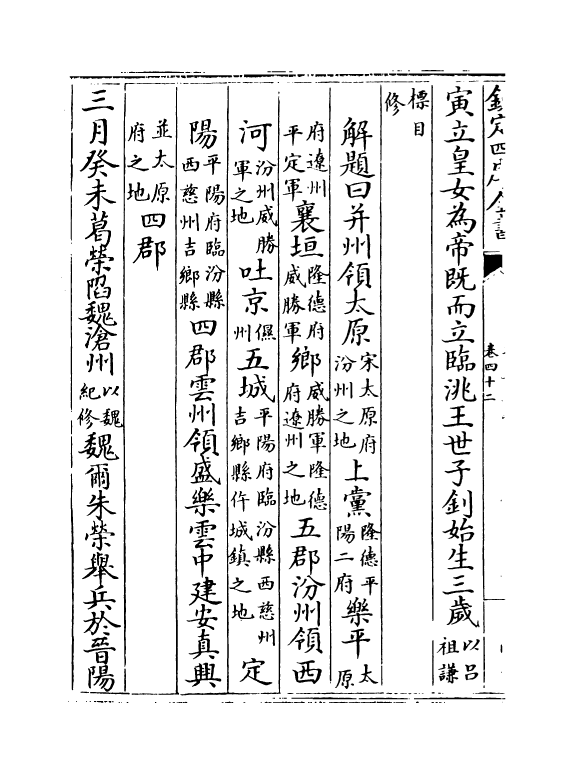 欽定四庫全書
卷四十二
寅立皇女為帝既而立臨洮王世子釗始生三歲以吕祖謙
標目修
解題曰并州領太原宋太原府汾州之地上黨隆德平陽二府樂平太原
府遼州平定軍襄垣隆德府威勝軍鄉威勝軍隆德府遼州之地五郡汾州領西
河汾州威勝軍之地吐京隰州五城平陽府臨汾縣西慈州吉鄉縣仵城鎮之地定
陽平陽府臨汾縣西慈州吉鄉縣四郡雲州領盛樂雲中建安真興
並太原府之地四郡
三月癸未葛榮陷魏滄州以魏紀修魏爾朱榮舉兵於晉陽